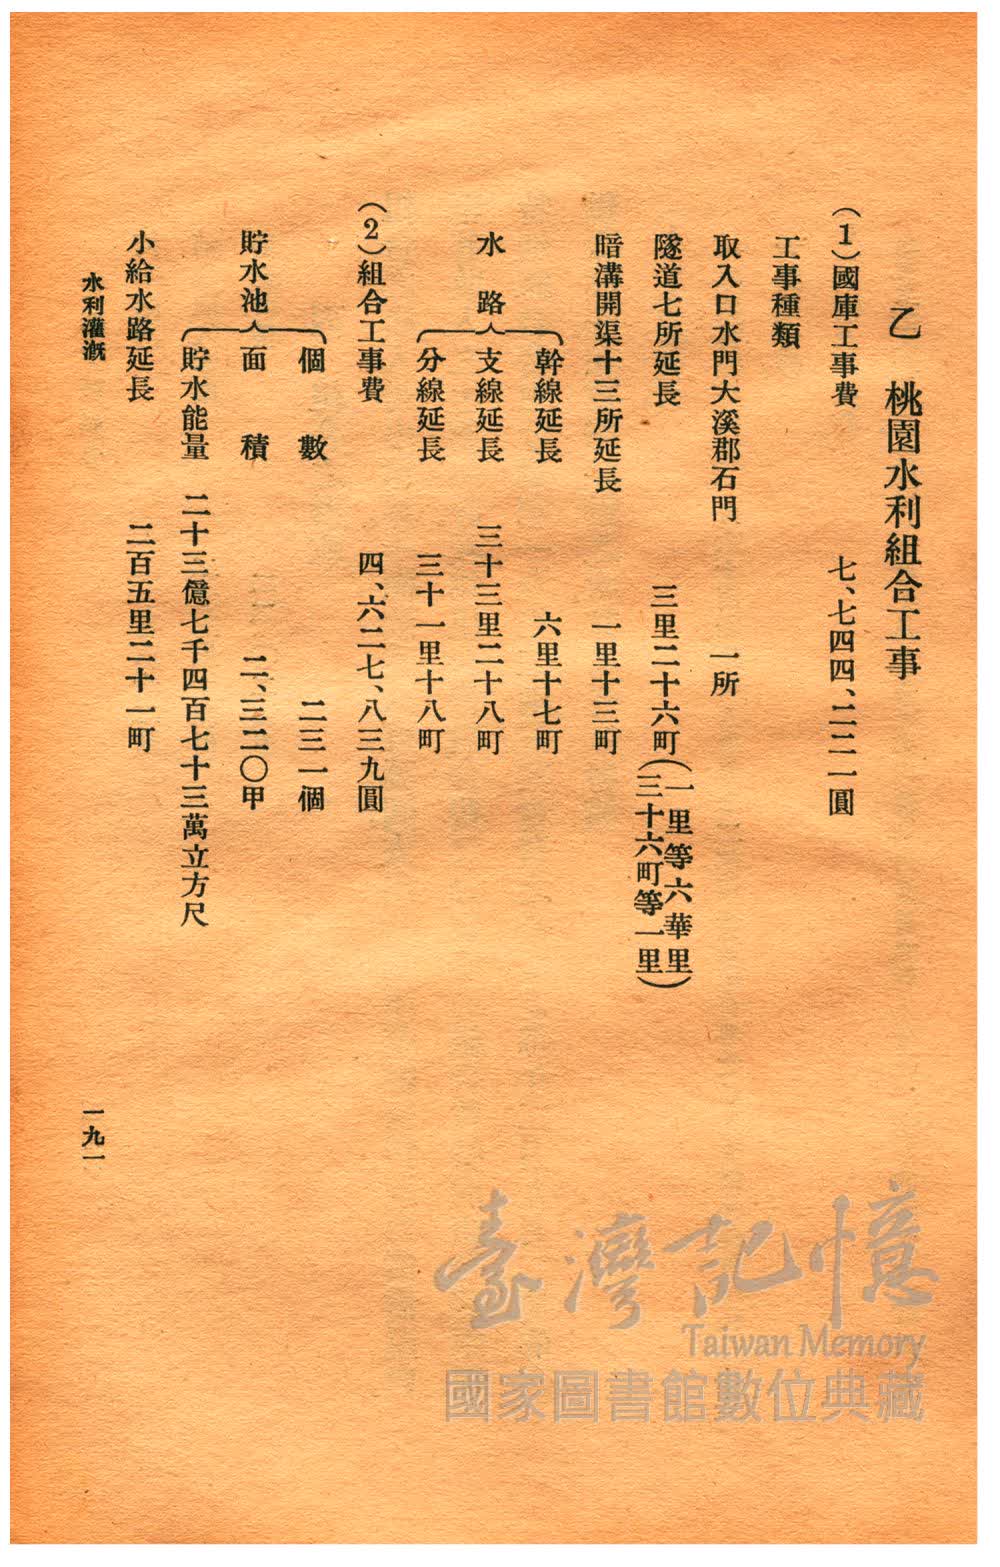 乙　桃園水利組合工事
（1）國庫工事費　七、七四四、二二一圓
工事種類
取入口水門大溪郡石門　一所
隧道七所延長　三里二十六町（一里等六華里）（三十六町等一里）
暗溝開渠十三所延長　一里十三町
水路
幹線延長　六里十七町
支線延長　三十三里二十八町
分線延長　三十一里十八町
（2）組合工事費　四、六二七、八三九圓
貯水池
個數　二三一個
面積　二、三二〇甲
貯水能量　二十三億七千四百七十三萬立方尺
小給水路延長　二百五里二十一町
水利灌漑
一九一
臺灣記憶
Taiwan Memory
國家圖書館數位典藏